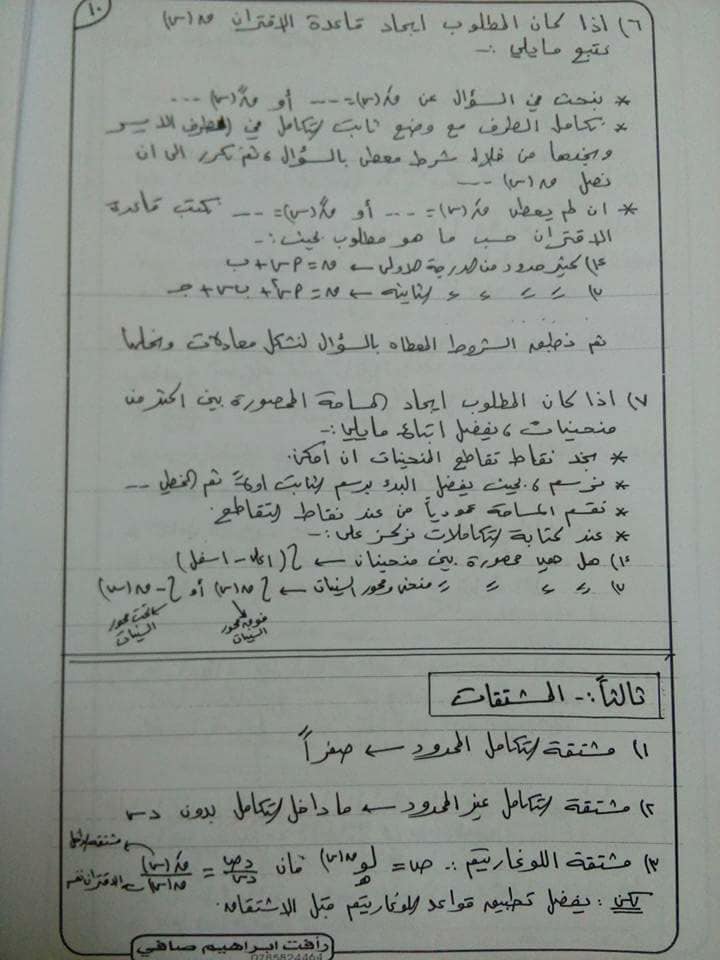 ١٠
٦) اذا كان المطلوب ايجاد قاعدة الاقتران ق(س)
نتبع مايلي :-
* نبحث في السؤال عن قَ(س)= --- أو قً(س) ---
* نكامل الطرف مع وضع ثابت التكامل في الطرف الايسر
ونجدها من خلال شرط معطى بالسؤال ، ثم نكرر الى ان
نصل ق(س) ---
* ان لم يعطى قَ(س)= --- أو قً(س)= --- نكتب قاعدة
الاقتران حسب ما هو مطلوب بحيث :-
١) كثير حدود من الدرجة الاولى ← ق= أس + ب
٢) // // // // الثانية ← ق= أس٢ + ب س + جـ
ثم نطبق الشروط المعطاه بالسؤال لتشكل معادلات ونحلها
٧) اذا كان المطلوب ايجاد المساحة المحصورة بين اكثر من
منحنيات ، يفضل اتباع مايلي :-
* نجد نقاط تقاطع المنحنيات ان امكن.
* نرسم ، بحيث يفضل البدء برسم الثابت اولاً ثم الخطي ---
* نقسم المساحة عمودياً من عند نقاط التقاطع.
* عند كتابة التكاملات نركز على :-
١) هل هي محصورة بين منحنيان ← ∫(اعلى - اسفل)
٢) // // // // منحنى ومحور السينات ← ∫ق(س) أو ∫-ق(س)
فوق محور السينات
تحت محور السينات
ثالثاً :- المشتقات
١) مشتقة التكامل المحدود ← صفراً
٢) مشتقة التكامل غير المحدود ← ما داخل التكامل بدون دس
٣) مشتقة اللوغاريتم :- ص= لو هـ ق(س) فان دص/دس = قَ(س)/ق(س) ← مشتقة الداخل ← الاقتران نفسه
لكن : يفضل تطبيق قواعد اللوغاريتم قبل الاشتقاق.
رأفت ابراهيم صافي
0785824464